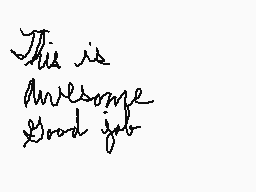 This is
Awesome
Good job